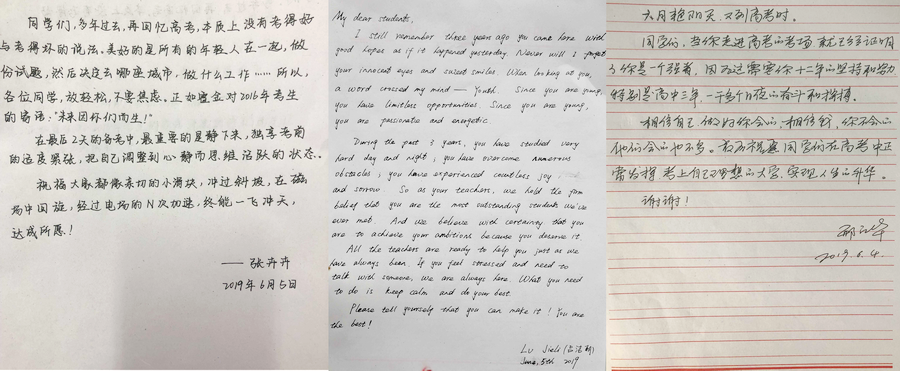 同学们，多年过去，再回忆高考，本质上没有考得好
与考得坏的说法。美好的是所有的年轻人在一起，做
份试题，然后决定去哪座城市，做什么工作……所以，
各位同学，放轻松，不要焦虑。正如
对2016年考生
的寄语："未来因你们而生！"
在最后2天的备考中，最重要的是静下来，
把自己调整到心静而思维活跃的状态。
祝福大家都像亲切的小滑块，冲过斜坡，在磁
场中回旋，经过电场的N次加速，终能一飞冲天，
达成所愿！
——张卉卉
2019年6月5日
My dear students,
I still remember three years ago you came here with
good hopes as if it happened yesterday. Never will I forget
your innocent eyes and sweet smiles. When looking at you,
a word crossed my mind — Youth. Since you are young,
you have limitless opportunities. Since you are young,
you are passionate and energetic.
During the past 3 years, you have studied very
hard day and night; you have overcome numerous
obstacles; you have experienced countless joy
and sorrow. So as your teachers, we hold the firm
belief that you are the most outstanding students we've
ever met. And we believe with certainty that you
are to achieve your ambitions because you deserve it.
All the teachers are ready to help you just as we
have always been. If you feel stressed and need to
talk with someone, we are always here. What you need
to do is keep calm and do your best.
Please tell yourself that you can make it! You are
the best!
Lu Jieli
June, 5th 2019
六月艳阳天，又到高考时。
同学们，当你走进高考的考场，就已经证明
了你是一个强者，因为这需要你十二年的坚持和努力
特别是高中三年，一千多个日夜的奋斗和拼搏。
相信自己，做好你会的；相信我，你不会的
他们会的也不多。
祝愿同学们在高考中正
常发挥，考上自己理想的大学，实现人生的升华。
谢谢！
2019.6.4.